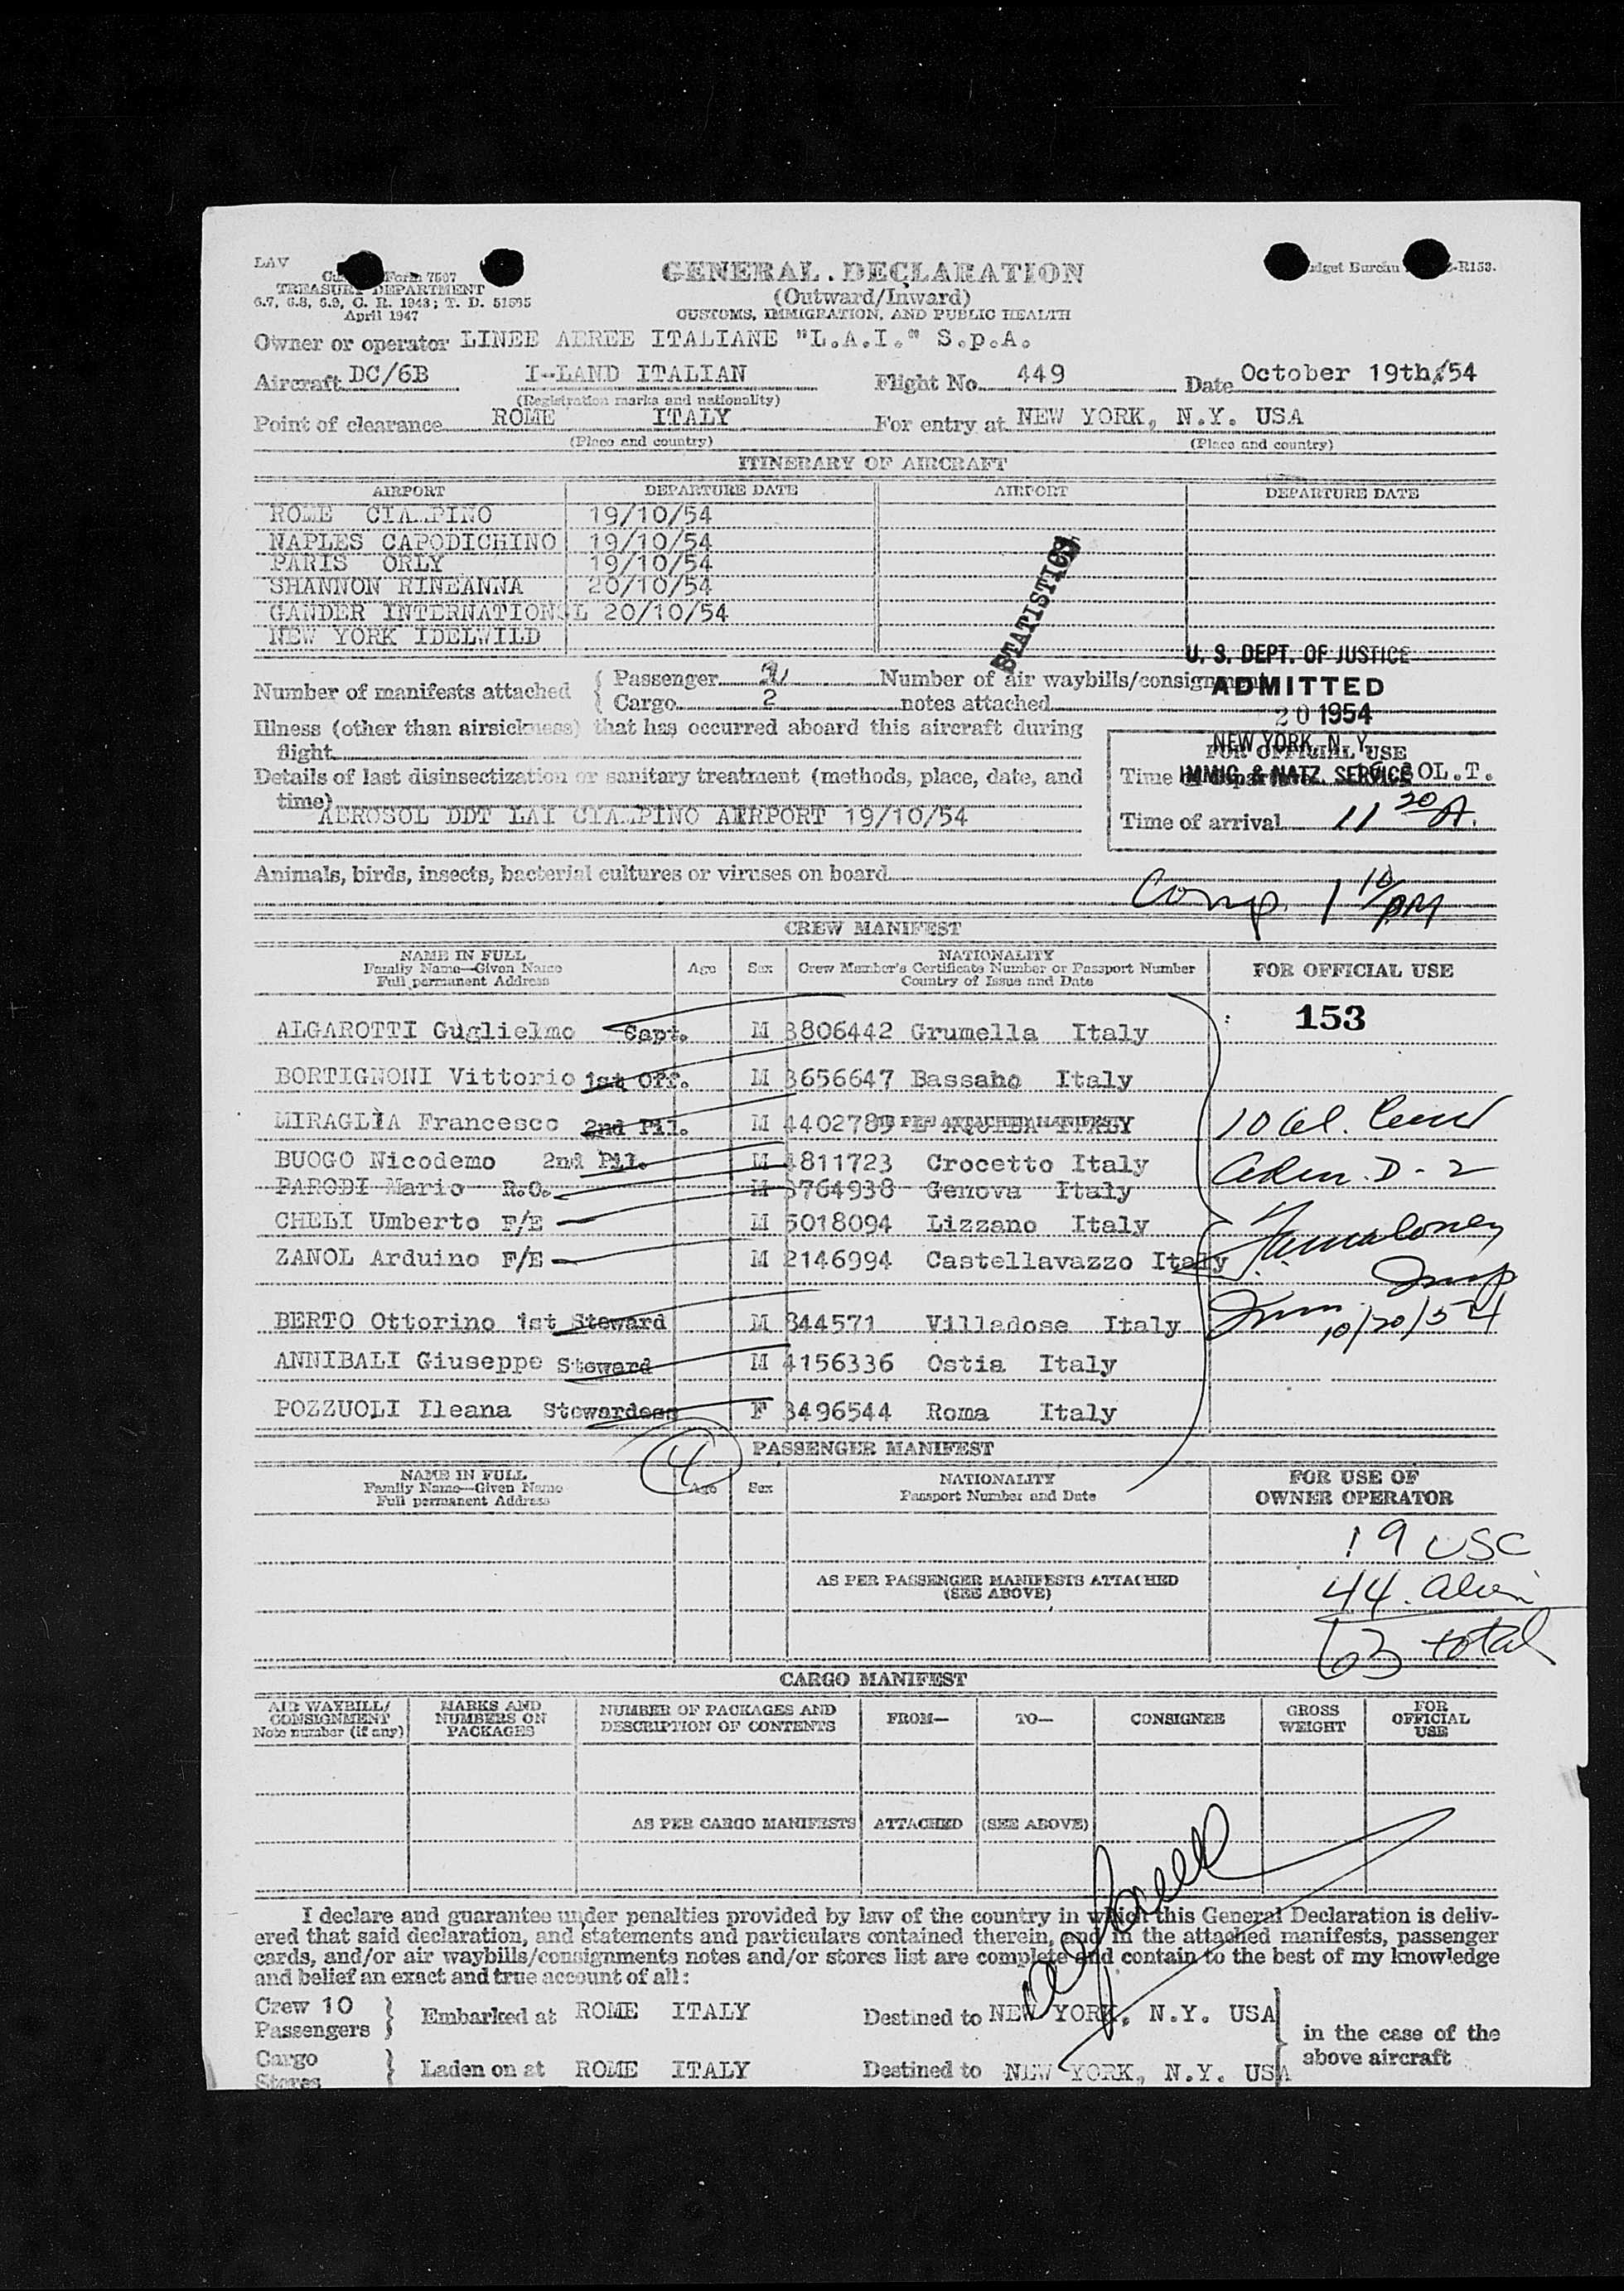 LAV
Form 7507
TREASURY DEPARTMENT
6.7, 6.8, 6.9, C. R. 1943; T. D. 51595
April 1947
GENERAL DECLARATION
(Outward/Inward)
CUSTOMS, IMMIGRATION, AND PUBLIC HEALTH
Bureau -R153.
Owner or operator LINEE AEREE ITALIANE "L.A.I." S.p.A.
Aircraft DC/6B I-LAND ITALIAN Flight No. 449 Date October 19th/54
(Registration marks and nationality)
Point of clearance ROME ITALY For entry at NEW YORK, N.Y. USA
(Place and country) (Place and country)
ITINERARY OF AIRCRAFT
AIRPORT DEPARTURE DATE AIRPORT DEPARTURE DATE
ROME CIAMPINO 19/10/54
NAPLES CAPODICHINO 19/10/54
PARIS ORLY 19/10/54
SHANNON RINEANNA 20/10/54
GANDER INTERNATIONAL 20/10/54
NEW YORK IDELWILD
STATISTICS
U. S. DEPT. OF JUSTICE
ADMITTED
20 1954
NEW YORK, N. Y.
IMMIG. & NATZ. SERVICE
Number of manifests attached { Passenger
Cargo 2
Number of air waybills/consignment
notes attached
Illness (other than airsickness) that has occurred aboard this aircraft during
flight
Details of last disinsectization or sanitary treatment (methods, place, date, and
time)
AEROSOL DDT LAI CIAMPINO AIRPORT 19/10/54
FOR OFFICIAL USE
Time of departure OL.T.
Time of arrival 11 20 A.
Animals, birds, insects, bacterial cultures or viruses on board
Comp. 1 10 PM
CREW MANIFEST
NAME IN FULL
Family Name—Given Name
Full permanent Address
Age Sex
NATIONALITY
Crew Member's Certificate Number or Passport Number
Country of Issue and Date
FOR OFFICIAL USE
153
ALGAROTTI Guglielmo Capt. M 3806442 Grumella Italy
BORTIGNONI Vittorio 1st Off. M 3656647 Bassaho Italy
MIRAGLÌA Francesco 2nd Pil. M 4402789 ITALY
BUOGO Nicodemo 2nd Pil. M 4811723 Crocetto Italy
PARODI Mario R.O. M 3764938 Genova Italy
CHELI Umberto F/E M 5018094 Lizzano Italy
ZANOL Arduino F/E M 2146994 Castellavazzo Italy
BERTO Ottorino 1st Steward M 844571 Villadose Italy
ANNIBALI Giuseppe Steward M 4156336 Ostia Italy
POZZUOLI Ileana Stewardess F 3496544 Roma Italy
D-2
10/20/54
4
PASSENGER MANIFEST
NAME IN FULL
Family Name—Given Name
Full permanent Address
Age Sex
NATIONALITY
Passport Number and Date
FOR USE OF
OWNER OPERATOR
19 USC
AS PER PASSENGER MANIFESTS ATTACHED
(SEE ABOVE)
44. alien
63 total
CARGO MANIFEST
AIR WAYBILL/
CONSIGNMENT
Note number (if any)
MARKS AND
NUMBERS ON
PACKAGES
NUMBER OF PACKAGES AND
DESCRIPTION OF CONTENTS
FROM— TO— CONSIGNEE
GROSS
WEIGHT
FOR
OFFICIAL
USE
AS PER CARGO MANIFESTS ATTACHED (SEE ABOVE)
I declare and guarantee under penalties provided by law of the country in which this General Declaration is deliv-
ered that said declaration, and statements and particulars contained therein, and in the attached manifests, passenger
cards, and/or air waybills/consignments notes and/or stores list are complete and contain to the best of my knowledge
and belief an exact and true account of all:
Crew 10
Passengers } Embarked at ROME ITALY Destined to NEW YORK, N.Y. USA
Cargo
Stores } Laden on at ROME ITALY Destined to NEW YORK, N.Y. USA
in the case of the
above aircraft